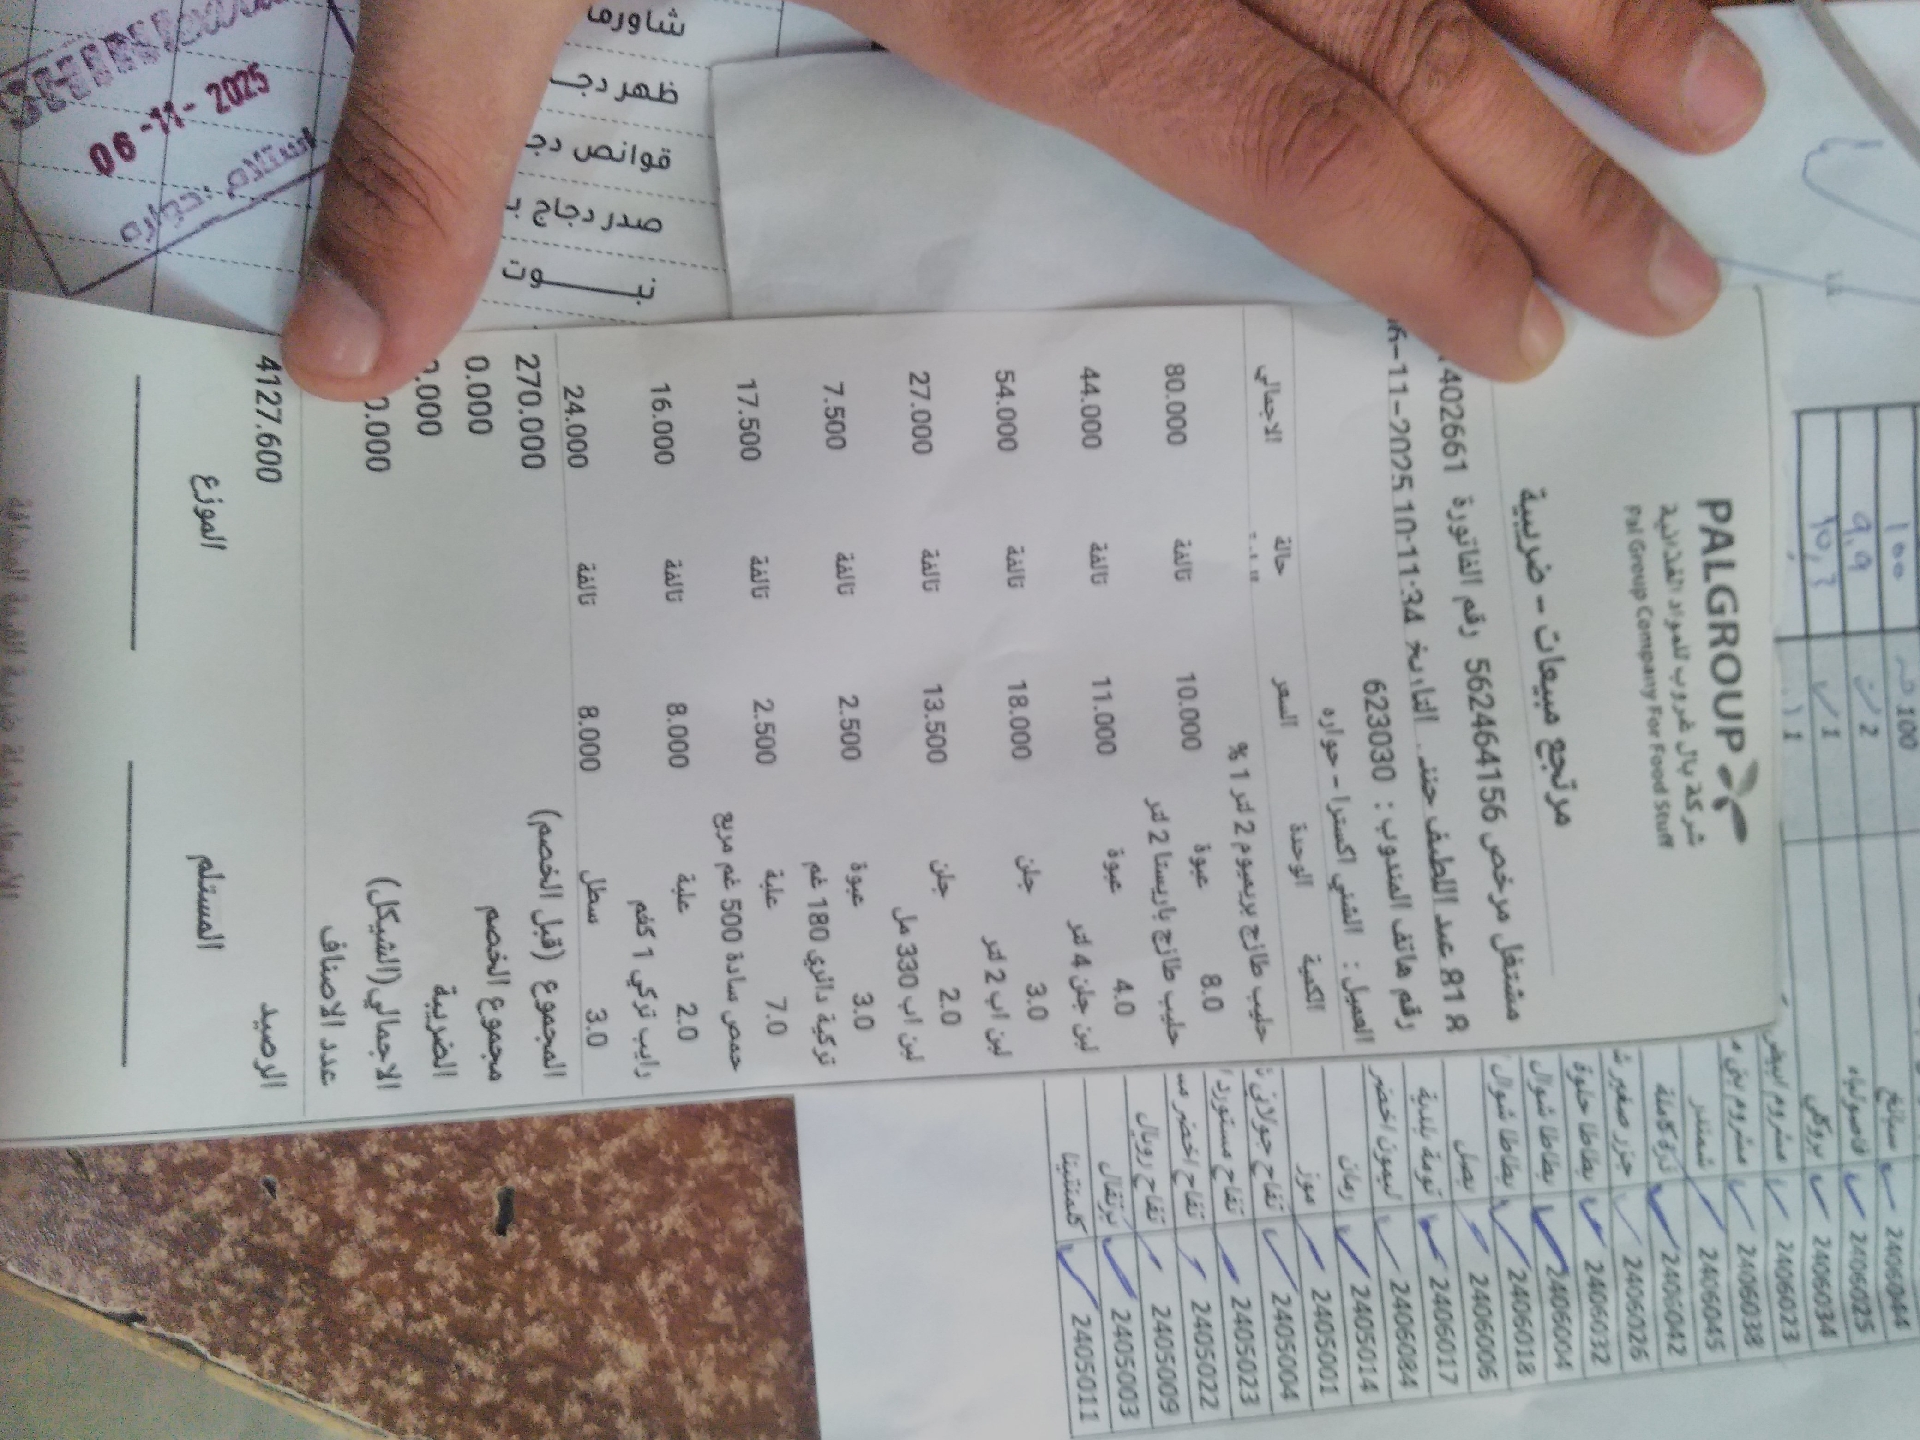 PALGROUP
شركة بال غروب للمواد الغذائية
Pal Group Company For Food Stuff
مرتجع مبيعات - ضريبية
مشتغل مرخص 562464156 رقم الفاتورة 402661
818 عبد اللطيف التاريخ 06-11-2025 10:11:34
رقم هاتف المندوب : 623030
العميل : الشني اكسترا - حواره
الكمية الوحدة السعر حالة الاجمالي
حليب طازج بريميوم 2 لتر 1 %
8.0 عبوة 10.000 تالفة 80.000
حليب طازج باريستا 2 لتر
4.0 عبوة 11.000 تالفة 44.000
لبن جلن 4 لتر
3.0 جلن 18.000 تالفة 54.000
لبن اب 2 لتر
2.0 جلن 13.500 تالفة 27.000
لبن اب 330 مل
3.0 عبوة 2.500 تالفة 7.500
تركية دائري 180 غم
7.0 علبة 2.500 تالفة 17.500
حمص سادة 500 غم مربع
2.0 علبة 8.000 تالفة 16.000
رايب تركي 1 كغم
3.0 سطل 8.000 تالفة 24.000
المجموع (قبل الخصم) 270.000
مجموع الخصم 0.000
الضريبة 0.000
الاجمالي(الشيكل) 0.000
عدد الاصناف
الرصيد 4127.600
المستلم الموزع
شاورما
ظهر دجـ
قوانص دجـ
صدر دجاج
06-11-2025
100
2
1
سبانخ 2406044
فاصولياء 2406025
بروكلي 2406034
مشروم ابيض 2406023
مشروم بني 2406038
شمندر 2406045
ذرة كاملة 2406042
جزر صغير 2406026
بطاطا حلوة 2406032
بطاطا شوال 2406004
بطاطا شوال 2406018
بصل 2406006
تومة بلدية 2406017
ليمون اخضر 2406084
رمان 2405014
موز 2405001
تفاح جولاني 2405004
تفاح مستورد 2405023
تفاح اخضر 2405022
تفاح رويال 2405009
برتقال 2405003
كلمنتينا 2405011